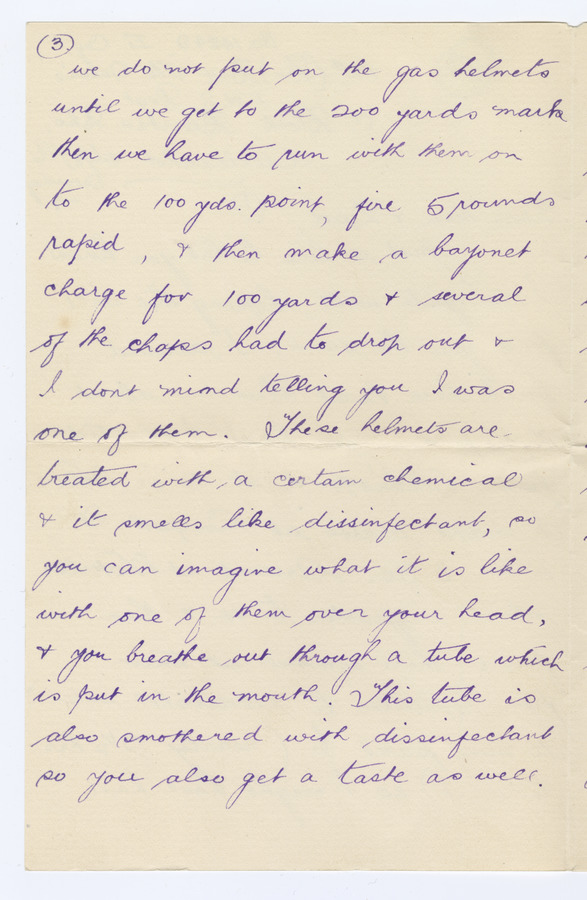 3.
we do not put on the gas helmets
until we get to the 200 yards mark
then we have to run with them on
to the 100 yds. point, fire 5 rounds
rapid, & then make a bayonet
charge for 100 yards & several
of the chaps had to drop out &
I dont mind telling you I was
one of them. These helmets are
treated with a certain chemical
& it smells like dissinfectant, so
you can imagine what it is like
with one of them over your head,
& you breathe out through a tube which
is put in the mouth. This tube is
also smothered with dissinfectant
so you also get a taste as well.